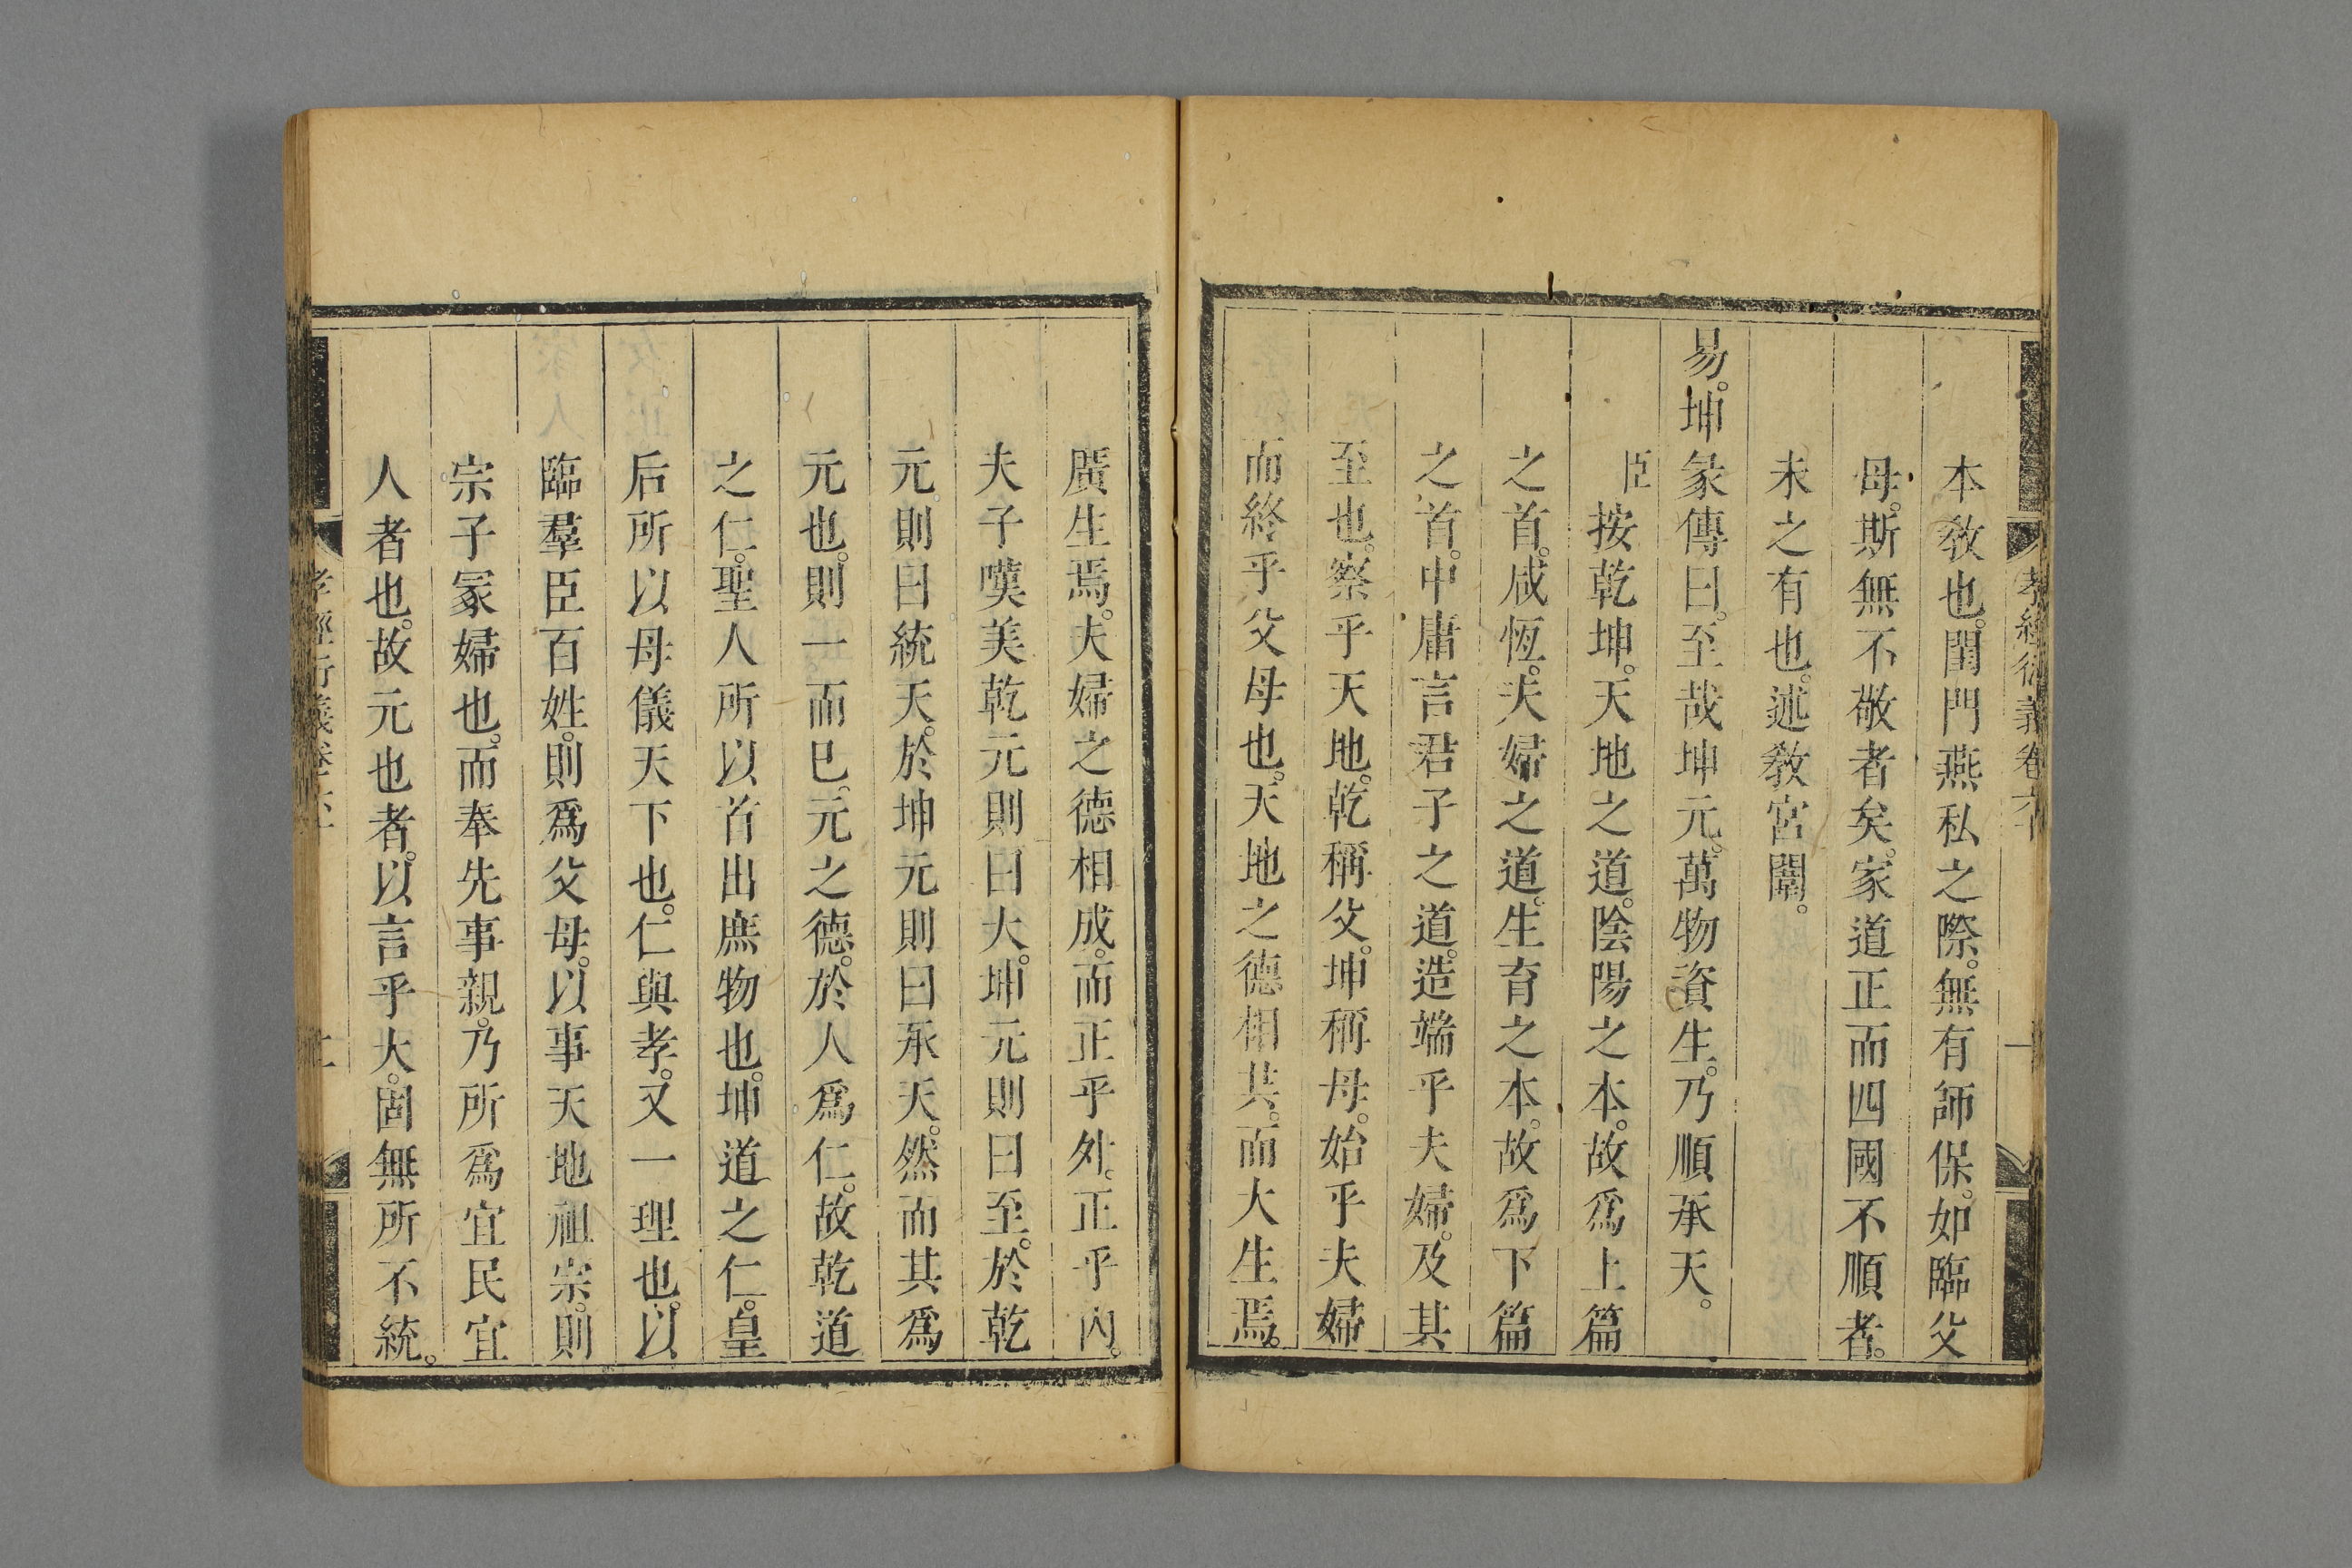 孝經衍義卷六十
一
本敎也。閨門燕私之際。無有師保。如臨父
母。斯無不敬者矣。家道正而四國不順者。
未之有也。述敎宮闈。
易。坤彖傳曰。至哉坤元。萬物資生。乃順承天。
臣按乾坤。天地之道。陰陽之本。故爲上篇
之首。咸恆。夫婦之道。生育之本。故爲下篇
之首。中庸言君子之道。造端乎夫婦。及其
至也。察乎天地。乾稱父。坤稱母。始乎夫婦
而終乎父母也。天地之德相共。而大生焉。
廣生焉。夫婦之德相成。而正乎外。正乎內。
夫子嘆美乾元則曰大。坤元則曰至。於乾
元。則曰統天。於坤元則曰承天。然而其爲
元也。則一而已。元之德。於人爲仁。故乾道
之仁。聖人所以首出庶物也。坤道之仁。皇
后所以母儀天下也。仁與孝。又一理也。以
臨羣臣百姓。則爲父母。以事天地祖宗。則
宗子冢婦也。而奉先事親。乃所爲宜民宜
人者也。故元也者。以言乎大。固無所不統。
孝經衍義卷六十
二